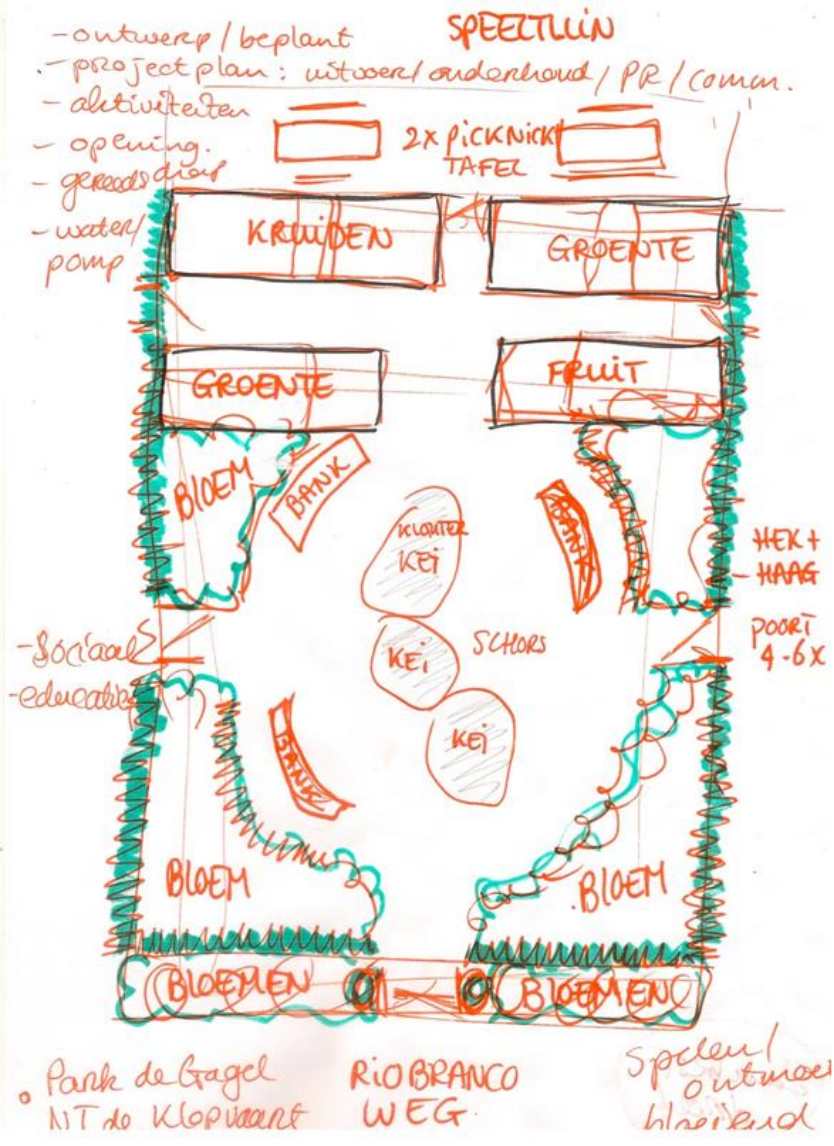 SPEELTUIN
- ontwerp / beplant
- projectplan : uitvoer / onderhoud / PR / comm.
- aktiviteiten
- opening.
- gereedschap
- water /
pomp
2x PICKNICK
TAFEL
KRUIDEN
GROENTE
GROENTE
FRUIT
BLOEM
BANK
KLOUTER
KEI
BANK
HEK +
- HAAG
POORT
4-6x
- Sociaal
- educatie
KEI
SCHORS
KEI
BANK
BLOEM
BLOEM
BLOEMEN
BLOEMEN
Park de Gagel
NT de Klopvaart
RIO BRANCO
WEG.
Spelen /
ontmoe
bloeiend